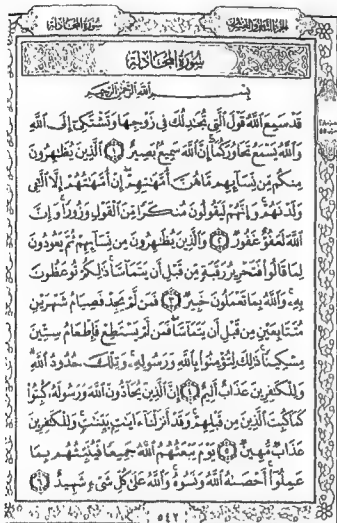 الجزء الثامن والعشرون سورة المجادلة
سورة المجادلة
بسم الله الرحمن الرحيم
قَدْ سَمِعَ اللَّهُ قَوْلَ الَّتِي تُجَادِلُكَ فِي زَوْجِهَا وَتَشْتَكِي إِلَى اللَّهِ
وَاللَّهُ يَسْمَعُ تَحَاوُرَكُمَا إِنَّ اللَّهَ سَمِيعٌ بَصِيرٌ ١ الَّذِينَ يُظَاهِرُونَ
مِنكُم مِّن نِّسَائِهِم مَّا هُنَّ أُمَّهَاتِهِمْ إِنْ أُمَّهَاتُهُمْ إِلَّا اللَّائِي
وَلَدْنَهُمْ وَإِنَّهُمْ لَيَقُولُونَ مُنكَرًا مِّنَ الْقَوْلِ وَزُورًا وَإِنَّ
اللَّهَ لَعَفُوٌّ غَفُورٌ ٢ وَالَّذِينَ يُظَاهِرُونَ مِن نِّسَائِهِمْ ثُمَّ يَعُودُونَ
لِمَا قَالُوا فَتَحْرِيرُ رَقَبَةٍ مِّن قَبْلِ أَن يَتَمَاسَّا ذَلِكُمْ تُوعَظُونَ
بِهِ وَاللَّهُ بِمَا تَعْمَلُونَ خَبِيرٌ ٣ فَمَن لَّمْ يَجِدْ فَصِيَامُ شَهْرَيْنِ
مُتَتَابِعَيْنِ مِن قَبْلِ أَن يَتَمَاسَّا فَمَن لَّمْ يَسْتَطِعْ فَإِطْعَامُ سِتِّينَ
مِسْكِينًا ذَلِكَ لِتُؤْمِنُوا بِاللَّهِ وَرَسُولِهِ وَتِلْكَ حُدُودُ اللَّهِ
وَلِلْكَافِرِينَ عَذَابٌ أَلِيمٌ ٤ إِنَّ الَّذِينَ يُحَادُّونَ اللَّهَ وَرَسُولَهُ كُبِتُوا
كَمَا كُبِتَ الَّذِينَ مِن قَبْلِهِمْ وَقَدْ أَنزَلْنَا آيَاتٍ بَيِّنَاتٍ وَلِلْكَافِرِينَ
عَذَابٌ مُّهِينٌ ٥ يَوْمَ يَبْعَثُهُمُ اللَّهُ جَمِيعًا فَيُنَبِّئُهُم بِمَا
عَمِلُوا أَحْصَاهُ اللَّهُ وَنَسُوهُ وَاللَّهُ عَلَى كُلِّ شَيْءٍ شَهِيدٌ ٦
٥٤٢